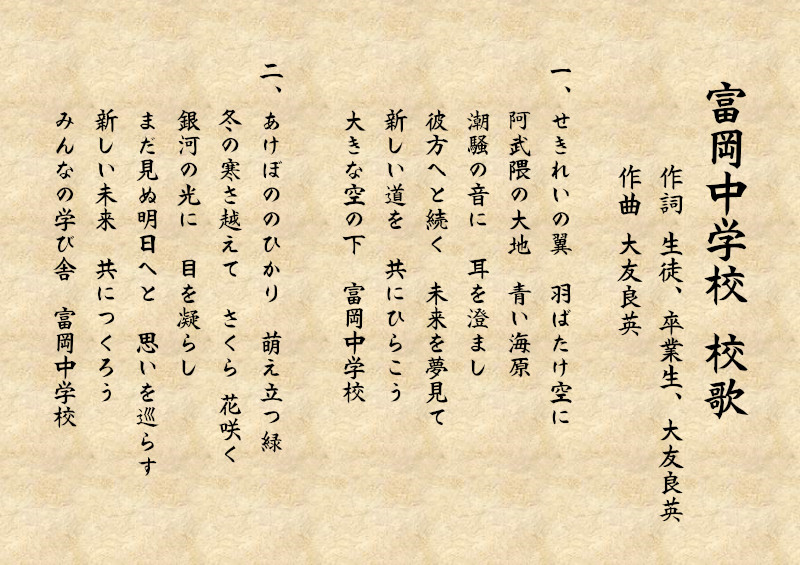 富岡中学校 校歌
作詞 生徒、卒業生、大友良英
作曲 大友良英
一、せきれいの翼 羽ばたけ空に
阿武隈の大地 青い海原
潮騒の音に 耳を澄まし
彼方へと続く 未来を夢見て
新しい道を 共にひらこう
大きな空の下 富岡中学校
二、あけぼののひかり 萌え立つ緑
冬の寒さ越えて さくら 花咲く
銀河の光に 目を凝らし
まだ見ぬ明日へと 思いを巡らす
新しい未来 共につくろう
みんなの学び舎 富岡中学校